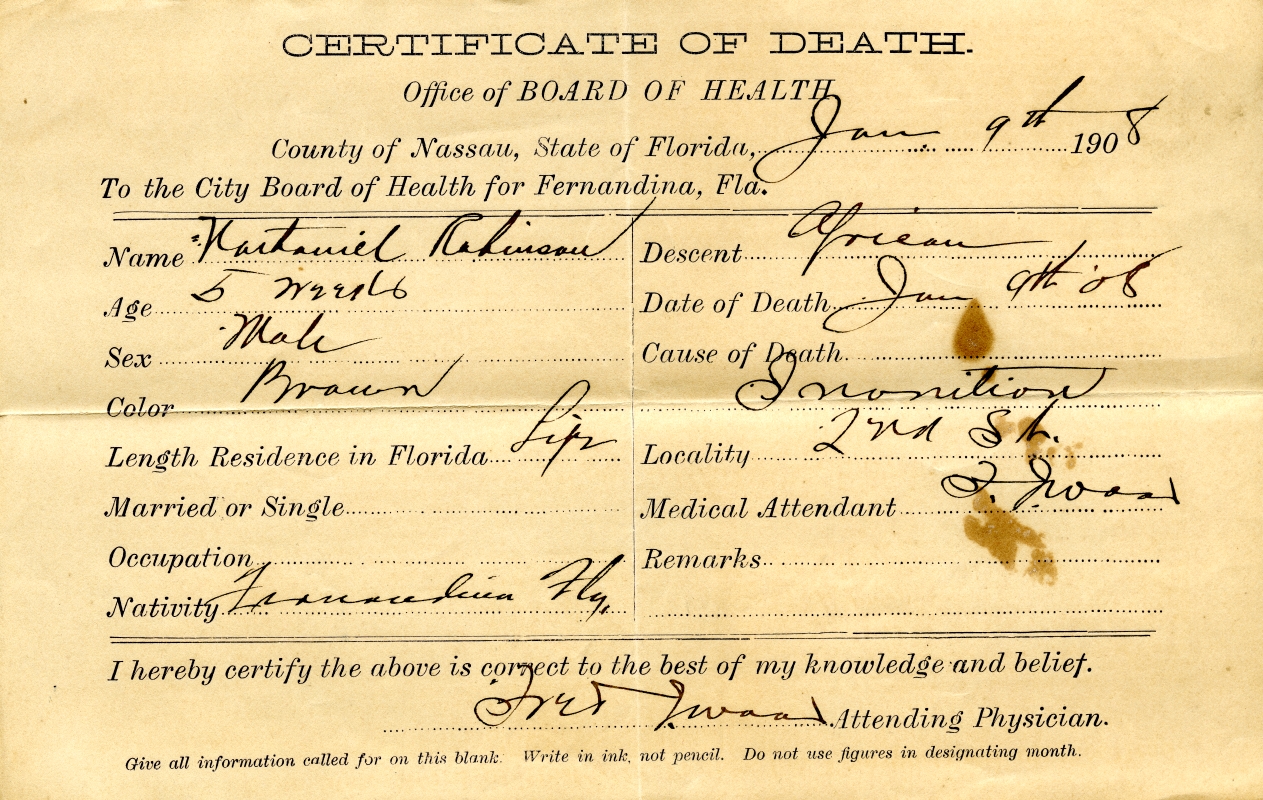 CERTIFICATE OF DEATH.
Office of BOARD OF HEALTH
County of Nassau, State of Florida, Jan 9th 1908
To the City Board of Health for Fernandina, Fla.
Name Nathaniel Robinson
Age 5 weeks
Sex Male
Color Brown
Length Residence in Florida Life
Married or Single
Occupation
Nativity Fernandina Fla,
Descent African
Date of Death Jan 9th 08
Cause of Death
Inanition
Locality 2nd St.
Medical Attendant
Remarks
I hereby certify the above is correct to the best of my knowledge and belief.
Attending Physician.
Give all information called for on this blank. Write in ink, not pencil. Do not use figures in designating month.